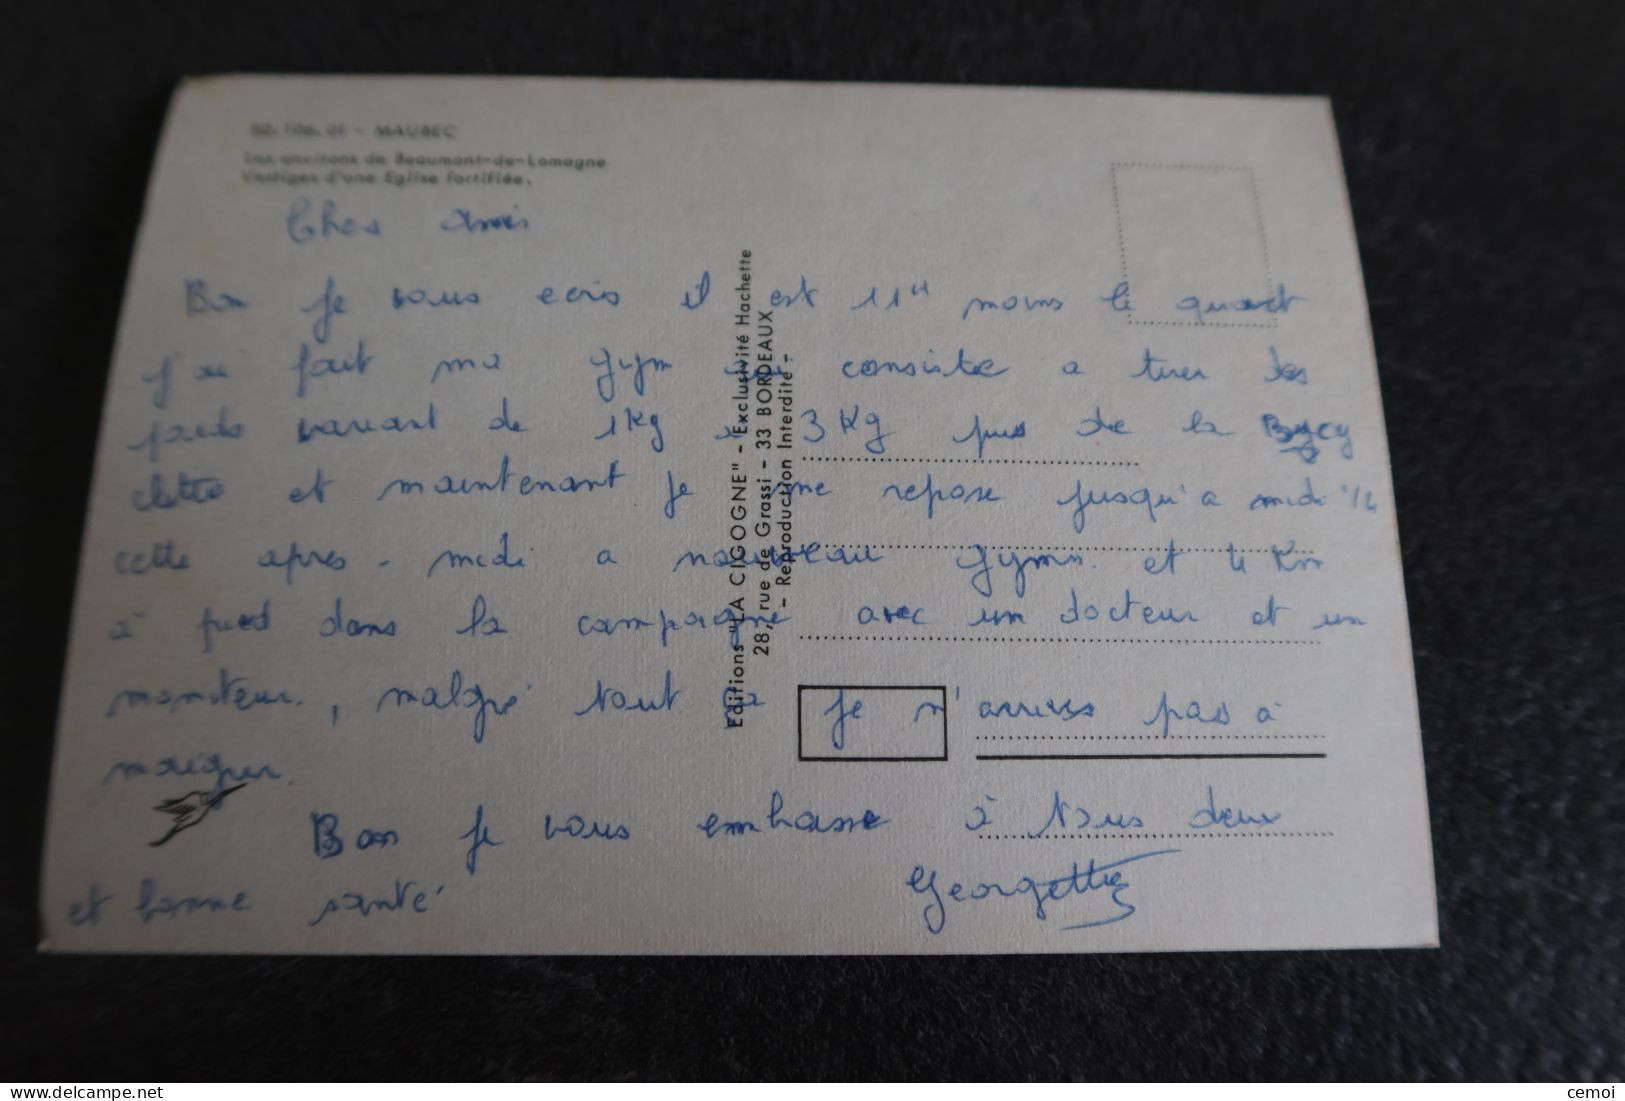 82.106.01 - MAUBEC
Les environs de Beaumont-de-Lomagne
Vestiges d'une Eglise fortifiée.
Chers Amis
Bon je vous ecris il est 11H moins le quart
j'ai fait ma gym qui consiste a tirer des
poids variant de 1Kg a 3Kg puis de la Bycy
clette et maintenant je me repose jusqu'a midi 1/2
cette apres-midi a nouveau gymn. et 4 Km
à pied dans la campagne avec un docteur et un
moniteur, malgré tout ça je n'arrives pas à
maigrir.
Bon je vous embrasse à tous deux
et bonne santé
Georgette
Editions "LA CIGOGNE" - Exclusivité Hachette
28, rue de Grassi - 33 BORDEAUX
- Reproduction Interdite -
cemoi